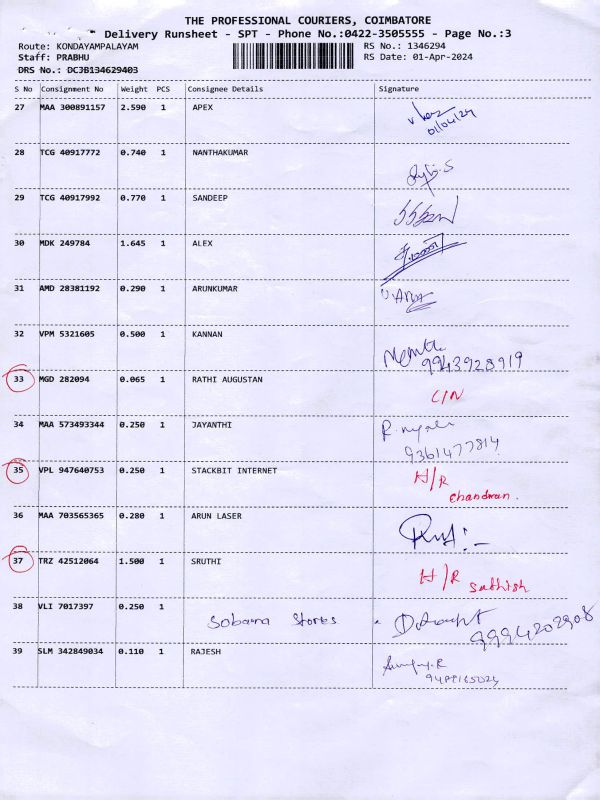 THE PROFESSIONAL COURIERS, COIMBATORE
Delivery Runsheet - SPT - Phone No.:0422-3505555 - Page No.:3
Route: KONDAYAMPALAYAM RS No.: 1346294
Staff: PRABHU RS Date: 01-Apr-2024
DRS No.: DCJB134629403
S No Consignment No Weight PCS Consignee Details Signature
27 MAA 300891157 2.590 1 APEX
01/04/24
28 TCG 40917772 0.740 1 NANTHAKUMAR
29 TCG 40917992 0.770 1 SANDEEP
30 MDK 249784 1.645 1 ALEX
31 AMD 28381192 0.290 1 ARUNKUMAR
32 VPM 5321605 0.500 1 KANNAN
9943928919
33 MGD 282094 0.065 1 RATHI AUGUSTAN
L/N
34 MAA 573493344 0.250 1 JAYANTHI
9361477814
35 VPL 947640753 0.250 1 STACKBIT INTERNET
H/R
chandran.
36 MAA 703565365 0.280 1 ARUN LASER
37 TRZ 42512064 1.500 1 SRUTHI
H/R Sathish
38 VLI 7017397 0.250 1
Sobana Stores
9994202908
39 SLM 342849034 0.110 1 RAJESH